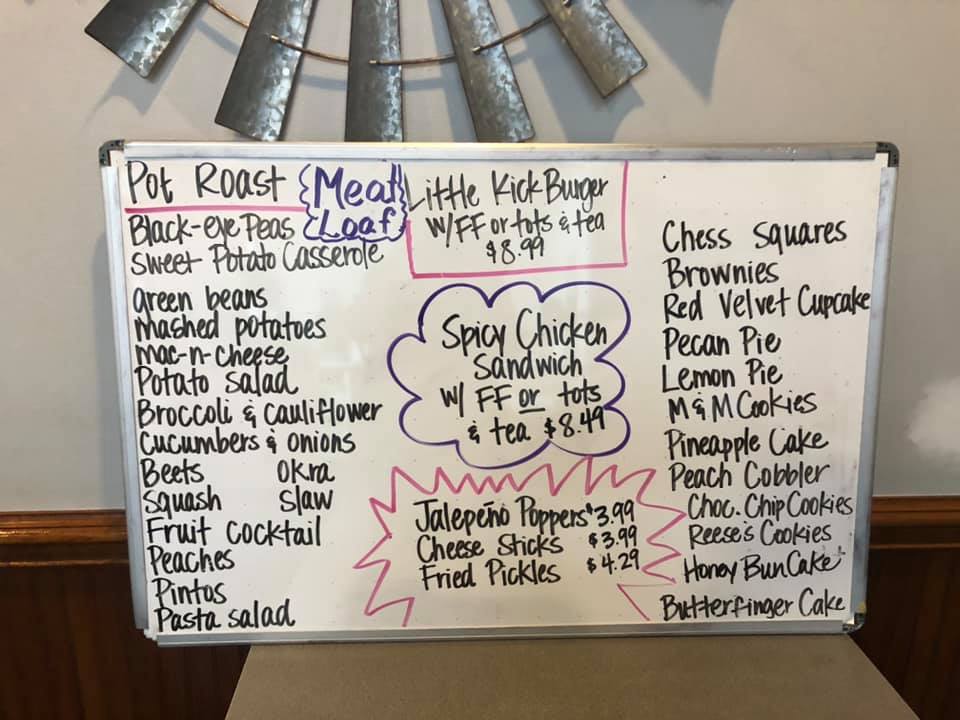 Pot Roast
Meat
Loaf
Black-eye Peas
Sweet Potato Casserole
green beans
Mashed potatoes
Mac-n-cheese
Potato salad
Broccoli & cauliflower
Cucumbers & onions
Beets okra
Squash slaw
Fruit cocktail
Peaches
Pintos
Pasta salad
Little Kick Burger
w/ FF or tots & tea
$8.99
Spicy Chicken
Sandwich
w/ FF or tots
& tea $8.49
Jalepeño Poppers $3.99
Cheese Sticks $3.99
Fried Pickles $4.29
Chess Squares
Brownies
Red Velvet Cupcake
Pecan Pie
Lemon Pie
M&M Cookies
Pineapple Cake
Peach Cobbler
Choc. Chip Cookies
Reese's Cookies
Honey Bun Cake
Butterfinger Cake